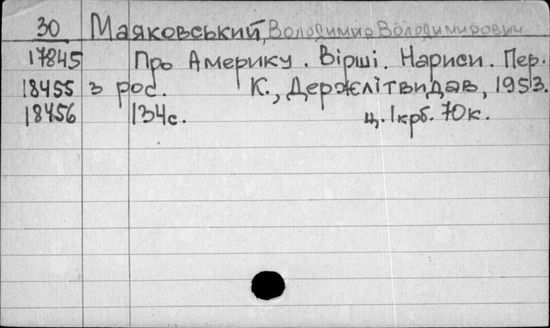 30 Маяковський, Володимир Володимирович
17845 Про Америку. Вірші. Нариси. Пер.
18455 з рос. К., Держлітвидав, 1953.
18456 134с. ц. 1крб. 70к.